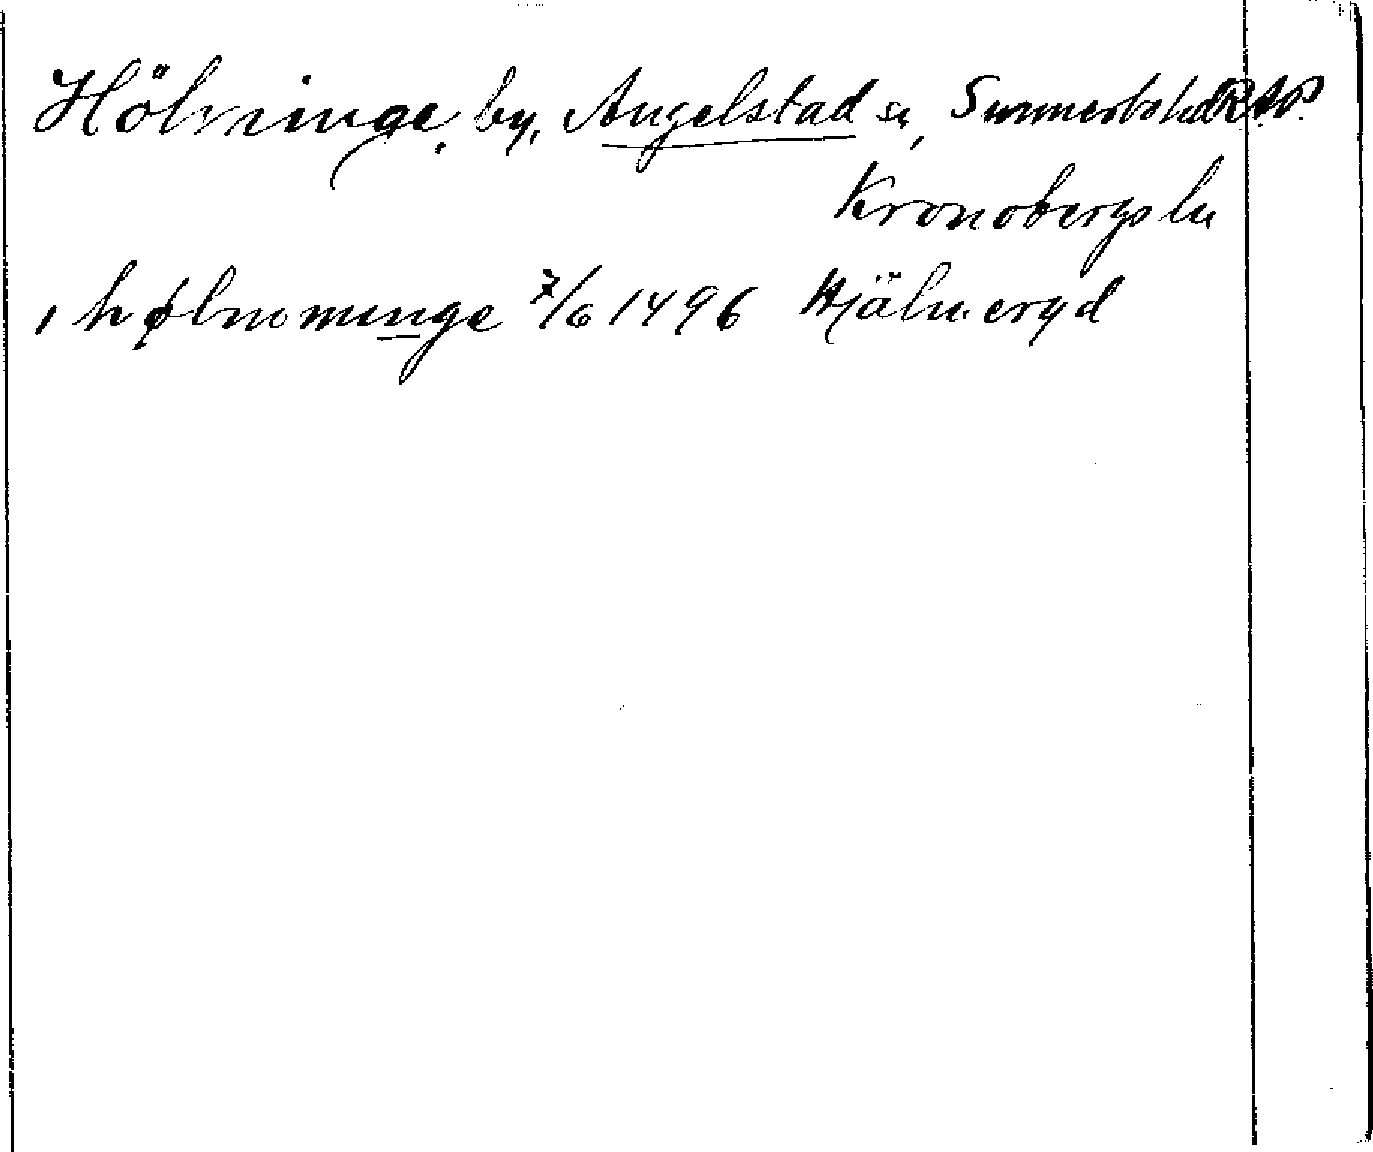 Hölminge, by, Angelstad sn, Sunnerbo hd RAP.
Kronobergs län
i hølmominge 7/6 1496 Hjälmeryd